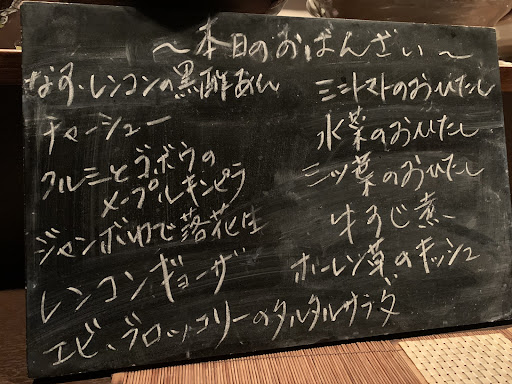 〜本日のおばんざい〜
なす・レンコンの黒酢あん
チャーシュー
クルミとゴボウの
メープルキンピラ
ジャンボゆで落花生
レンコンギョーザ
エビ、ブロッコリーのタルタルサラダ
ミニトマトのおひたし
水菜のおひたし
三ツ葉のおひたし
牛すじ煮
ホーレン草のキッシュ